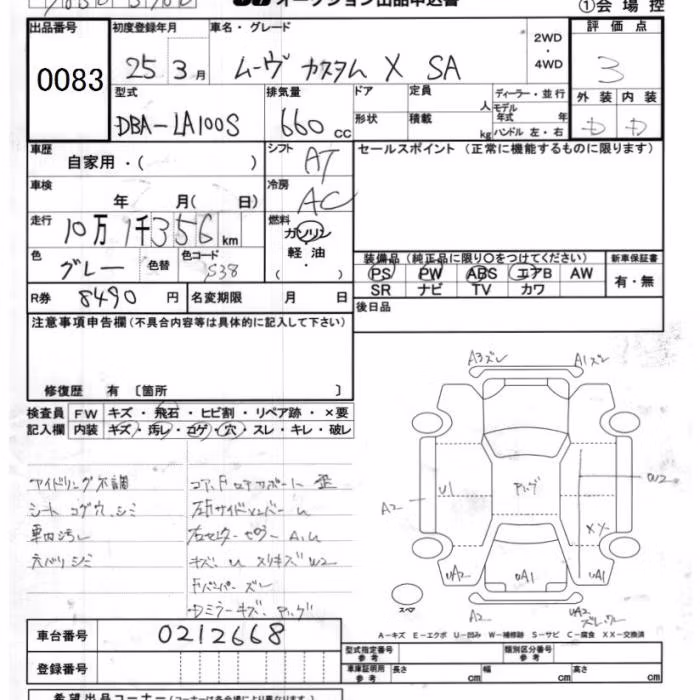 オークション出品申込書
①会場控
出品番号 初度登録年月 車名・グレード 評価点
0083 25年3月 ムーヴ カスタム X SA 2WD・4WD 3
型式 排気量 ドア 定員 人 ディーラー・並行 外装 内装
DBA-LA100S 660cc 形状 積載 kg モデル年式 年 ハンドル 左・右 D D
車歴 シフト セールスポイント(正常に機能するものに限ります)
自家用・( ) AT
車検 冷房
年 月( 日) AC
走行 燃料
10万1千356km ガソリン
軽油
色 色替 色コード ( ・ )
グレー S38
装備品(純正品に限り○をつけてください) 新車保証書
PS PW ABS エアB AW 有・無
SR ナビ TV カワ
R券 8490円 名変期限 月 日 後日品
注意事項申告欄(不具合内容等は具体的に記入して下さい)
修復歴 有 〔箇所 〕
検査員 FW キズ・飛石・ヒビ割・リペア跡・×要
記入欄 内装 キズ・汚レ・コゲ・穴・スレ・キレ・破レ
アイドリング不調
シート コゲ穴、シミ
車内汚レ
天バリ シミ
コアサポート 歪
左F サイドメンバー U
右センターピラー A、U
キズ、U スリキズ W2
Fバンパー ズレ
ミラーキズ
A3ズレ A1ズレ
U1 W2
A2 XX
UA2 UA1 UA1
スペア A2 UA2 ズレ
A-キズ E-エクボ U-凹み W-補修跡 S-サビ C-腐食 XX-交換済
車台番号 0212668
型式指定番号 参考 類別区分番号 参考
登録番号
車庫証明用 参考 長さ cm 幅 cm 高さ cm
希望出品コーナー(コーナーは各会場により異なります)